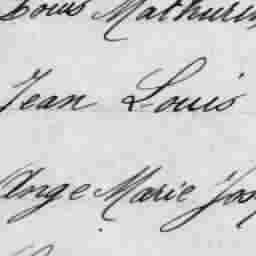 Louis Mathurin
Jean Louis
Ange Marie Jos